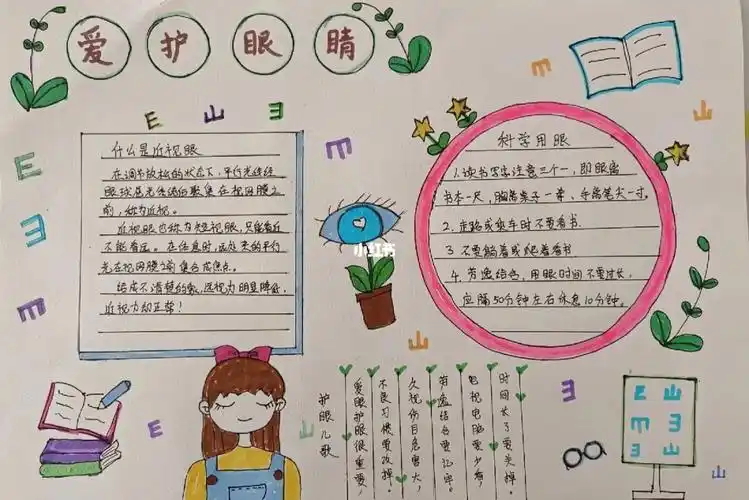 爱护眼睛
E山ヨ
什么是近视眼
在调节放松的状态下,平行光线经
眼球屈光系统后聚集在视网膜之
前,称为近视。
近视眼也称为短视眼,只能看近
不能看远。在休息时,远处来的平行
光在视网膜之前集合成焦点。
结成不清楚的象,远视力明显降低,
近视力却正常!
小红书
科学用眼
1.读书写字注意三个一,即眼离
书本一尺,胸离桌子一拳、手离笔尖一寸。
2.走路或乘车时不要看书.
3.不要躺着或趴着看书
4.劳逸结合,用眼时间不要过长,
应隔50分钟左右休息10分钟。
护眼儿歌
爱眼护眼很重要,
不良习惯要改掉。
久视伤目危害大,
劳逸结合要记牢。
电视电脑要少看,
时间长了要关掉。